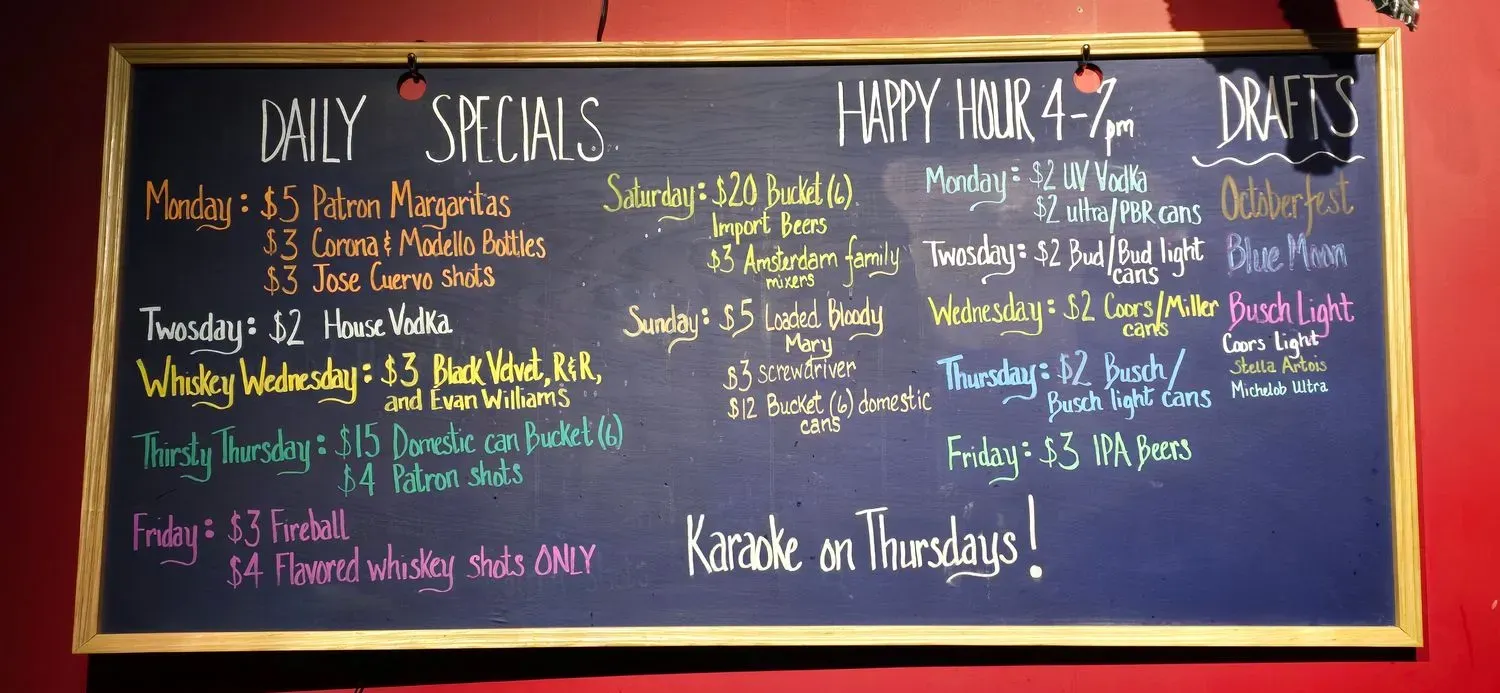 DAILY SPECIALS
Monday: $5 Patron Margaritas
$3 Corona & Modello Bottles
$3 Jose Cuervo shots
Twosday: $2 House Vodka
Whiskey Wednesday: $3 Black Velvet, R&R,
and Evan Williams
Thirsty Thursday: $15 Domestic can Bucket (6)
$4 Patron shots
Friday: $3 Fireball
$4 Flavored whiskey shots ONLY
Saturday: $20 Bucket (6)
Import Beers
$3 Amsterdam family
mixers
Sunday: $5 Loaded Bloody
Mary
$3 screwdriver
$12 Bucket (6) domestic
cans
HAPPY HOUR 4-7pm
Monday: $2 UV Vodka
$2 ultra/PBR cans
Twosday: $2 Bud/Bud light
cans
Wednesday: $2 Coors/Miller
cans
Thursday: $2 Busch/
Busch light cans
Friday: $3 IPA Beers
DRAFTS
Octoberfest
Blue Moon
Busch Light
Coors Light
Stella Artois
Michelob Ultra
Karaoke on Thursdays!